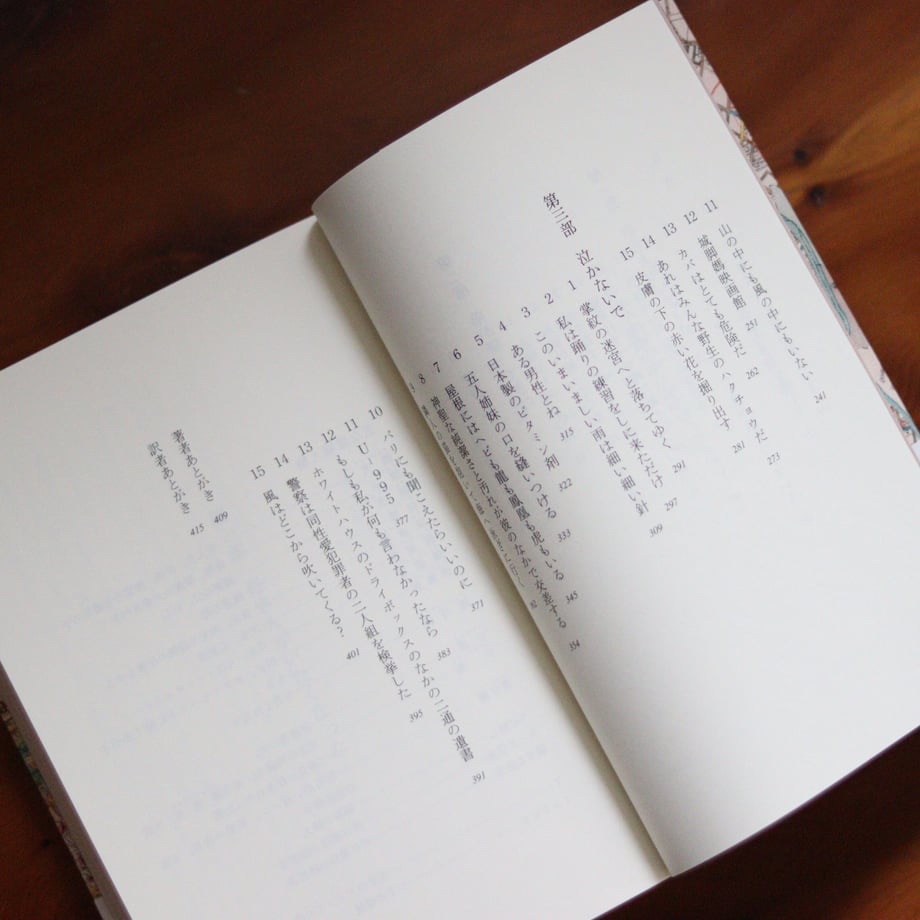 11 山の中にも風の中にもいない 241
12 城脚媽映画館 251
13 カバはとても危険だ 262
14 あれはみんな野生のハクチョウだ 273
15 皮膚の下の赤い花を掘り出す 281
第三部 泣かないで
1 掌紋の迷宮へと落ちてゆく 291
2 私は踊りの練習をしに来ただけ 297
3 このいまいましい雨は細い細い針 309
4 ある男性とね 315
5 日本製のビタミン剤 322
6 五人姉妹の口を縫いつける 333
7 屋根にはヘビも龍も鳳凰も虎もいる 345
8 神聖な純潔さと汚れが彼のなかで交差する 354
10 パリにも聞こえたらいいのに 371
11 U-995 377
12 もしも私が何も言わなかったなら 383
13 ホワイトハウスのドライボックスのなかの二通の遺書 391
14 警察は同性愛犯罪者の二人組を検挙した 395
15 風はどこから吹いてくる? 401
著者あとがき 409
訳者あとがき 415